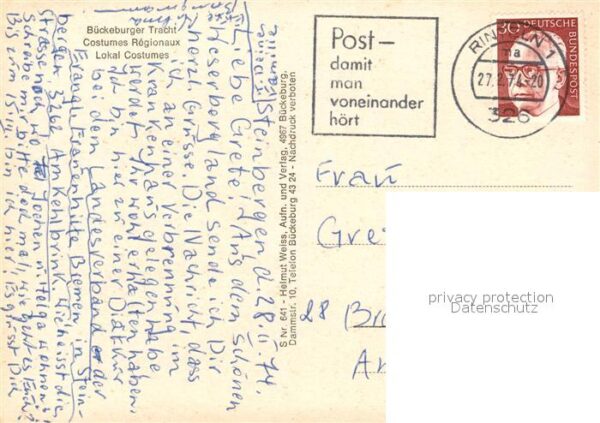 Bückeburger Tracht
Costumes Régionaux
Lokal Costumes
Steinbergen d. 28.II.74.
Liebe Grete! Aus dem schönen
Weserbergland sende ich Dir
herzl. Grüsse. Die Nachricht, dass
ich an einer Verbrennung im
Krankenhaus gelegen habe
werdet Ihr wohl erhalten haben.
Ich bin hier zu einer Diätkur
bei dem Landesverband der
Evang. Frauenhilfe Bremen in Stein-
bergen, 3262 Am Kehlbrink. Wie heisst die
Strasse noch wo Jochen u. Helga wohnen?
Schreibe mir bitte doch mal, wie geht es Euch?
Bis zum 15. bin ich hier. Es grüsst Dich
S Nr. 641 - Helmut Weiss, Aufn. und Verlag, 4967 Bückeburg,
Dammstr. 10, Telefon Bückeburg 43 24 - Nachdruck verboten
Post –
damit
man
voneinander
hört
RINTELN 1
na
27.2.74-20
326
30 DEUTSCHE
BUNDESPOST
Frau
Gre
28 Br
A
privacy protection
Datenschutz